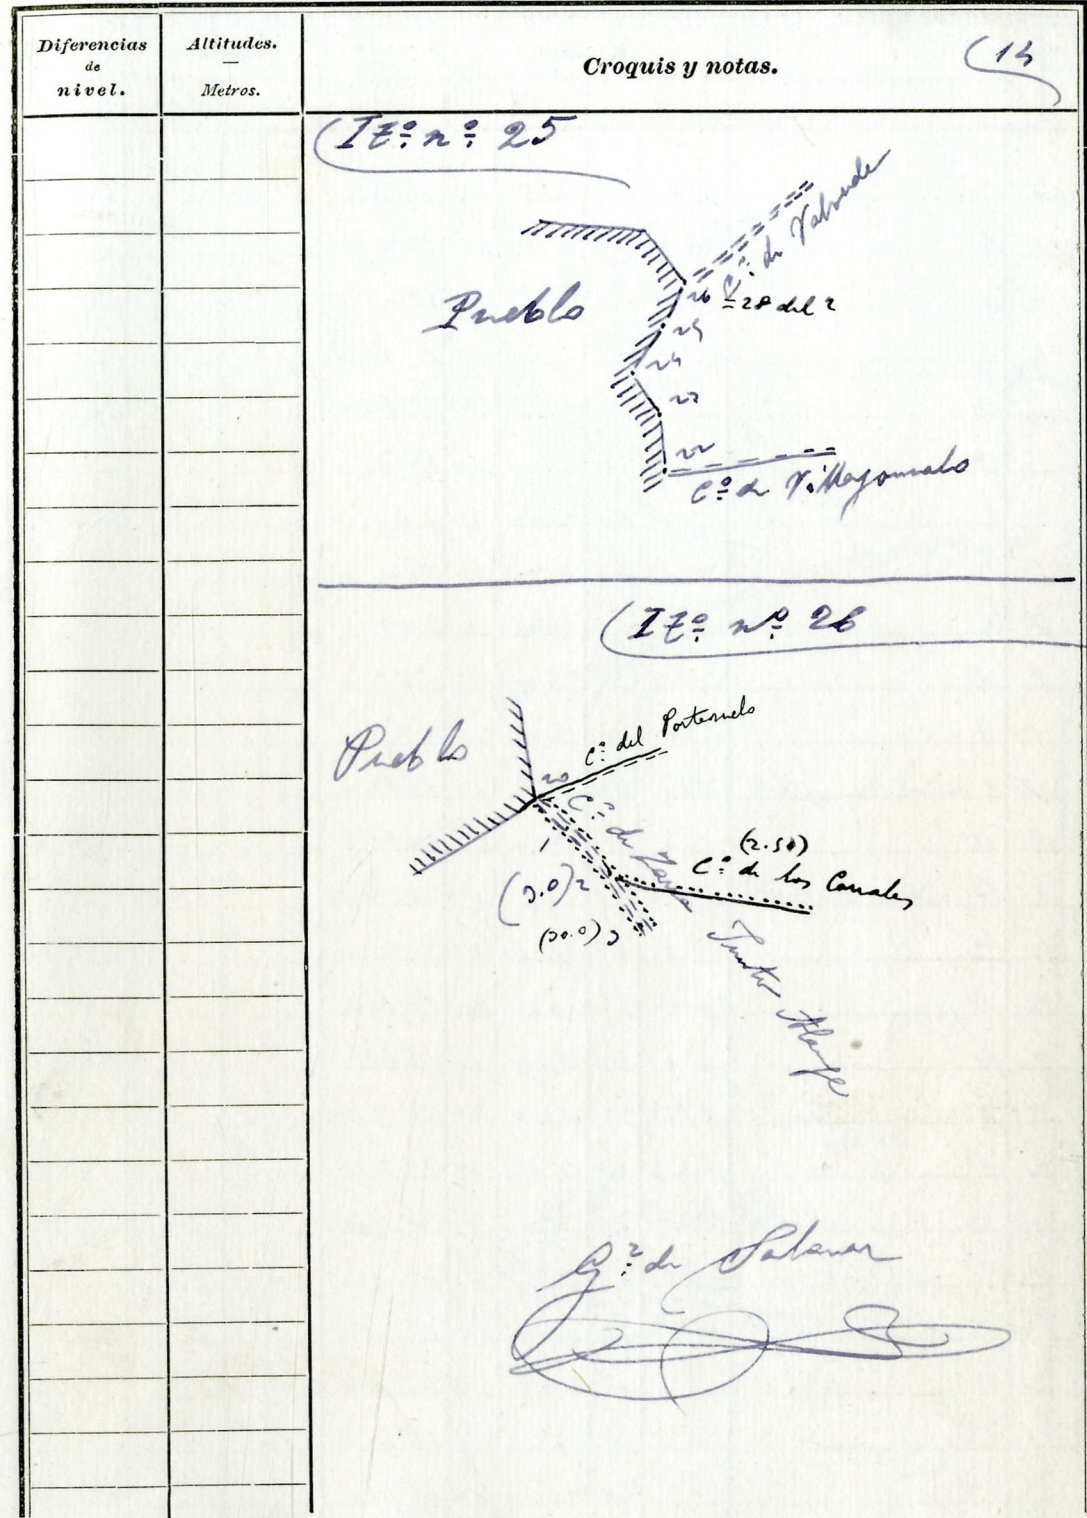 Diferencias
de
nivel.
Altitudes.
Metros.
Croquis y notas.
Itº nº 25
Cº de Valverde
Pueblo
26
=28 del 2
25
24
23
22
Cº de Villagonzalo
Itº nº 26
Pueblo
Cº del Portezuelo
20
Cº de Zarza Junto Alange
(2.50)
Cº de los Corrales
1
(3.0) 2
(30.0) 3